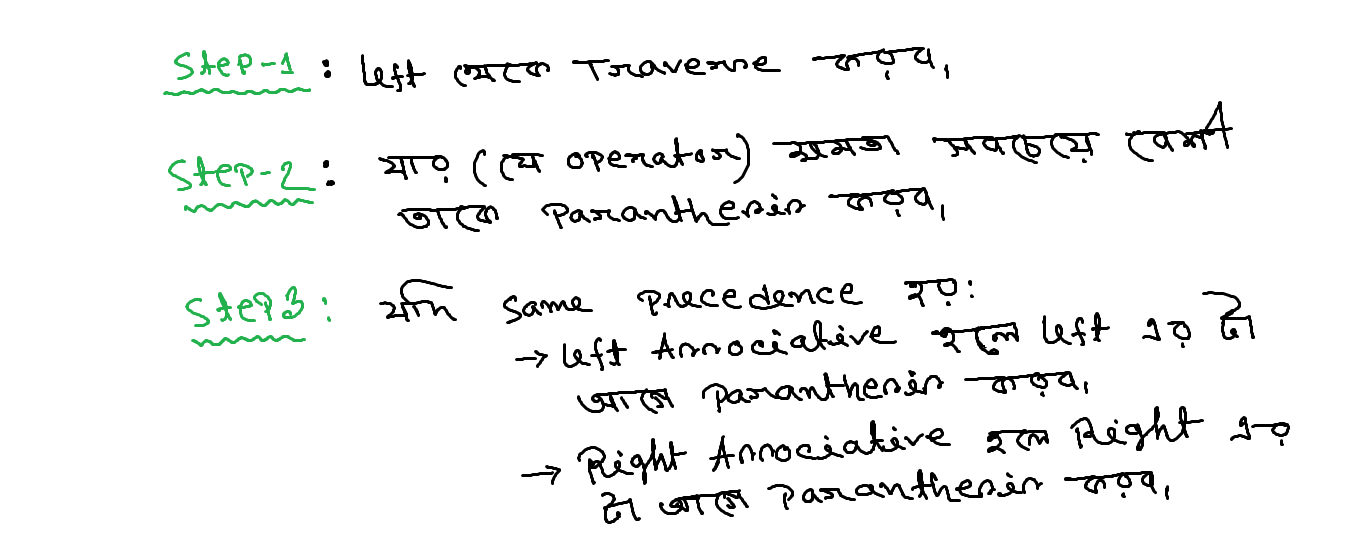 Step-1 : Left থেকে Traverse করব,
Step-2 : যার (যে operator) ক্ষমতা সবচেয়ে বেশী
তাকে Paranthesis করব,
Step 3 : যদি same precedence হয়:
→ Left Associative হলে Left এর টা
আগে Paranthesis করব,
→ Right Associative হলে Right এর
টা আগে Paranthesis করব,